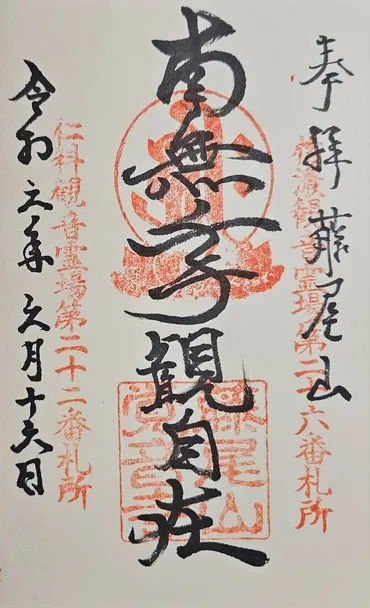 奉拝 藤尾山
観音霊場第二十六番札所
南無千手観自在
藤尾山
覚音寺
仁科観音霊場第二十二番札所
令和六年六月十六日